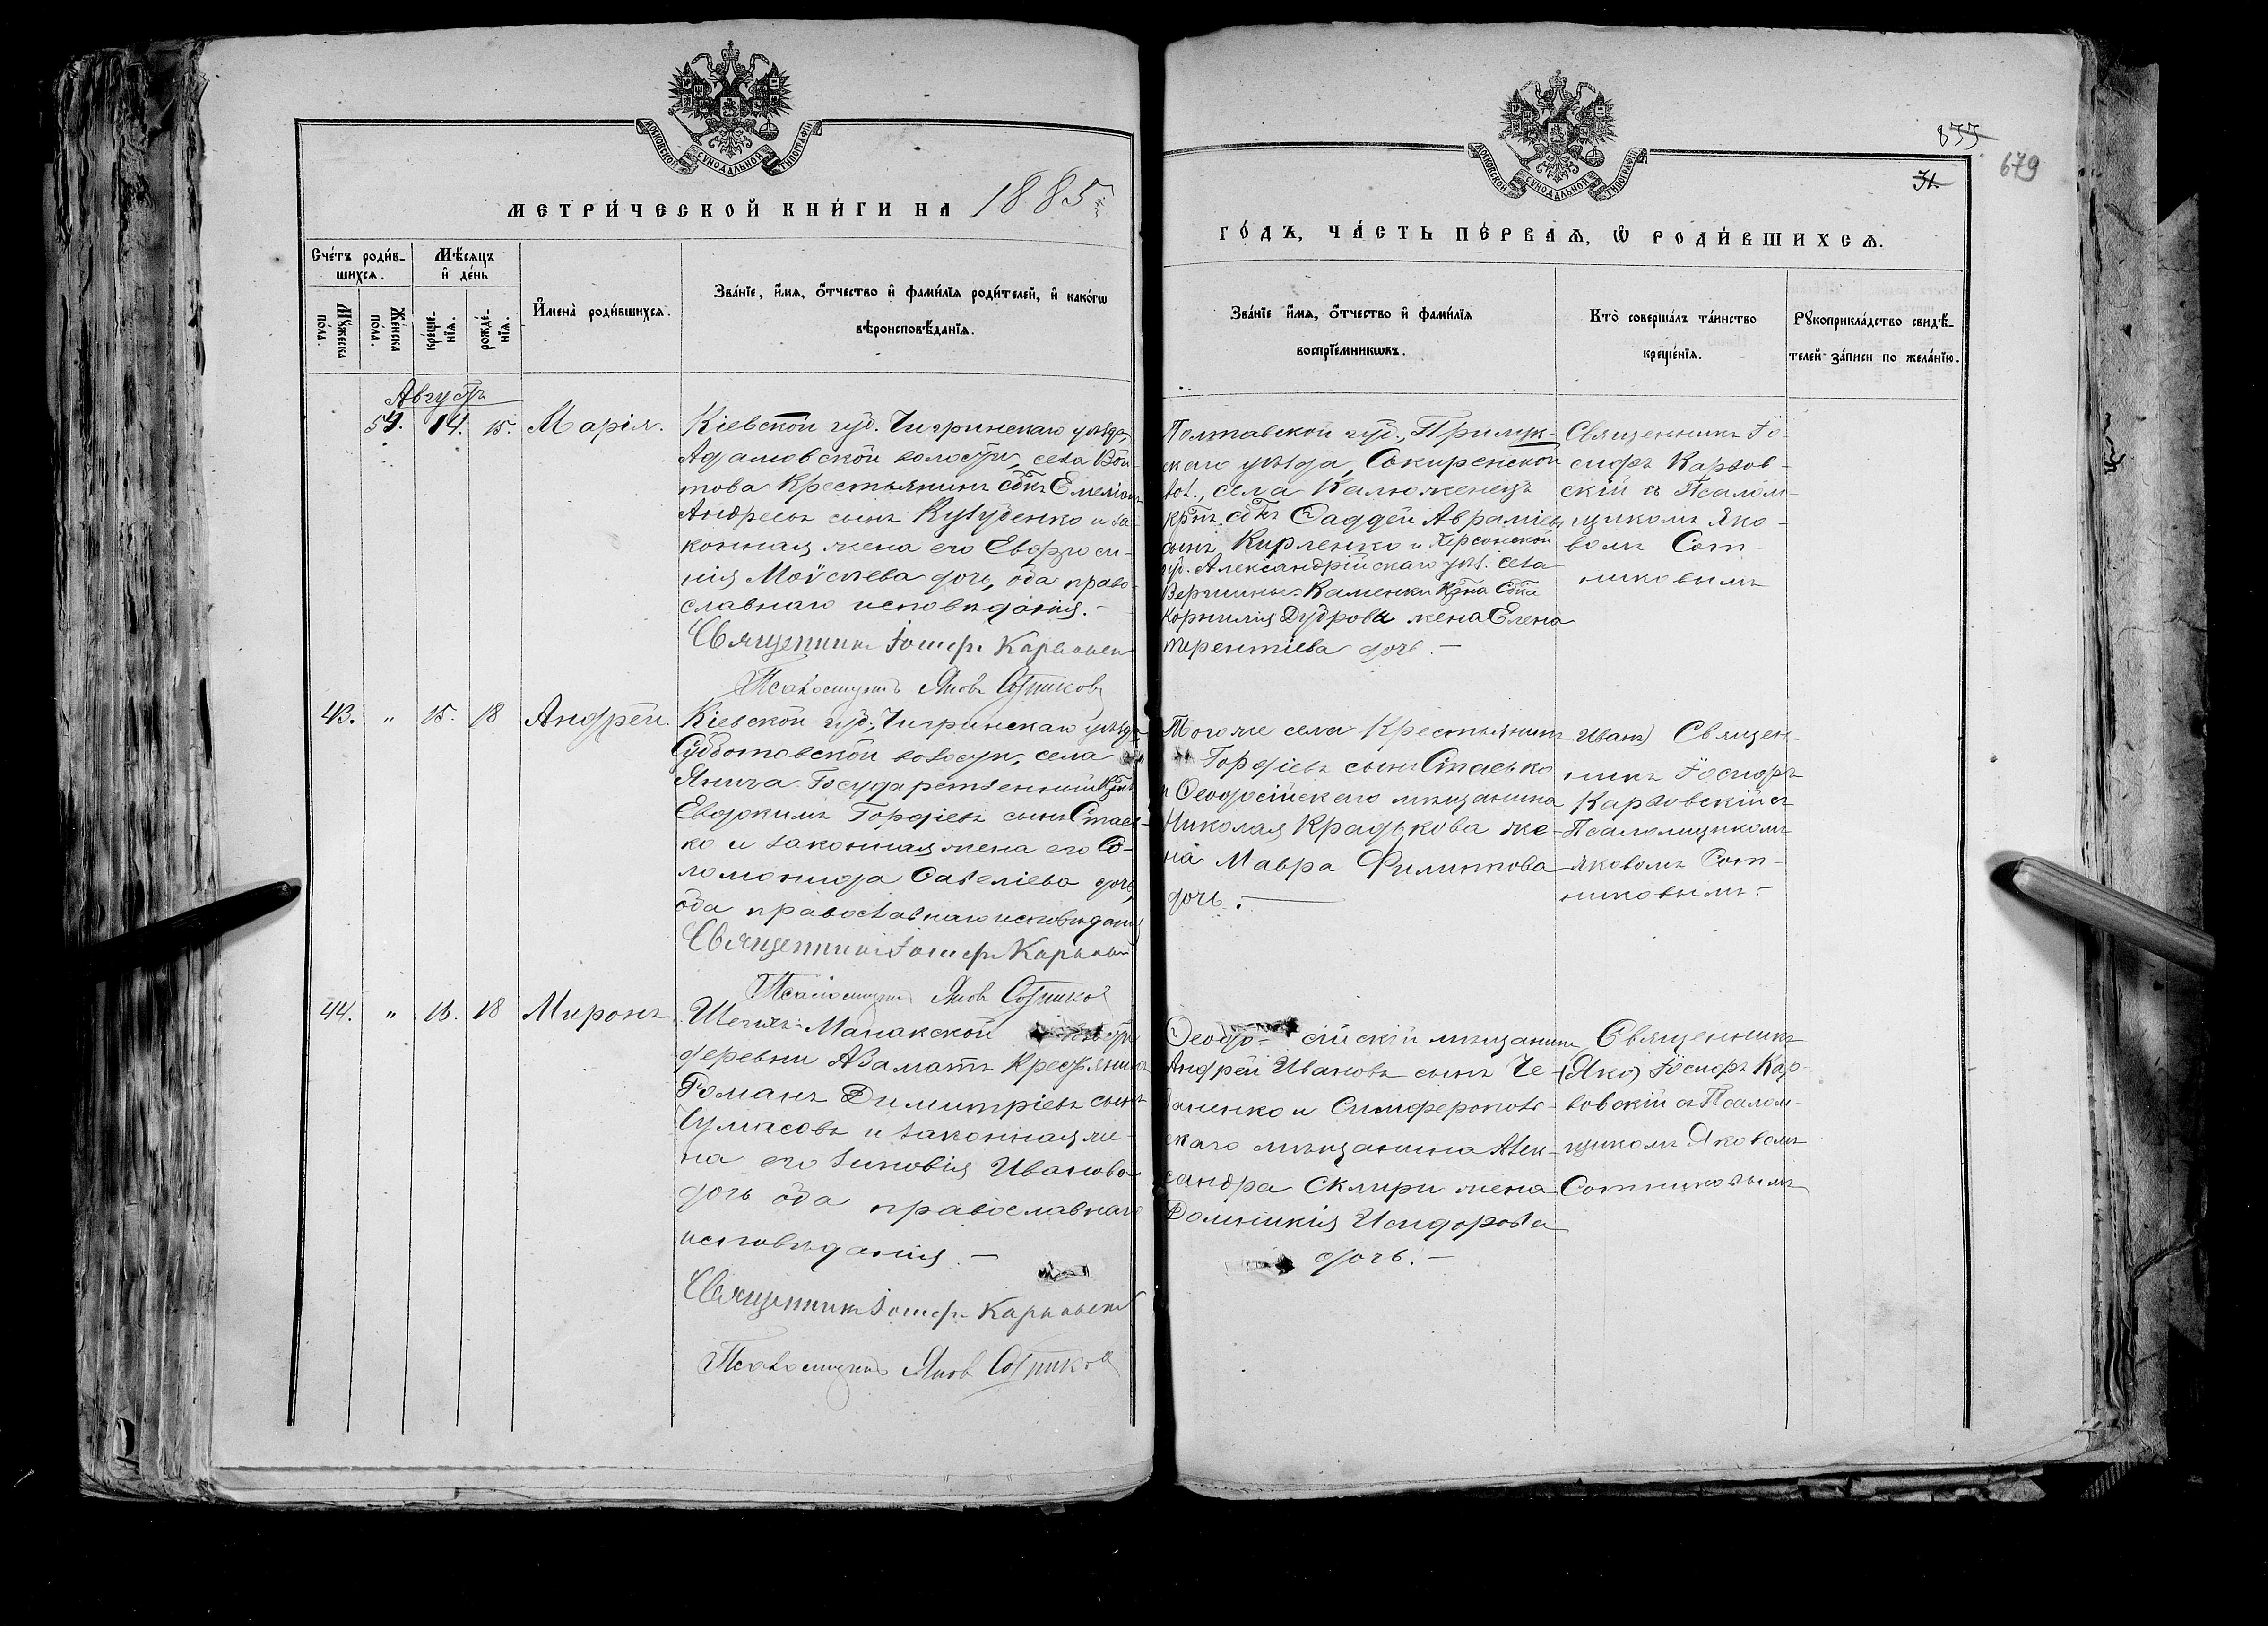 МОСКОВСКОЙ СѴНОДАЛЬНОЙ ТИПОГРАФІИ
МЕТРИ́ЧЕСКОЙ КНИ́ГИ НА 1885
Сче́тъ роди́в-
шихся.
Мѣ́сяцъ
и҆ де́нь
Мꙋ́жеска
по́ла.
Же́нска
по́ла.
креще-
нїѧ.
рожде́-
нїѧ.
И҆мена̀ роди́вшихсѧ.
Зва́нїе, и҆́мѧ, о҆́тчество и҆ фами́лїѧ роди́телей, и҆ како́гѡ
вѣроисповѣ́данїѧ.
Августъ
54. 14. 15. Марія.
Кіевской губ. Чигринскаго уѣзда,
Адамовской волости, села Вой-
това Крестьянинъ сбк. Емеліанъ
Андреевъ сынъ
законная жена его Евфроси-
нія Моѵсеева дочь, оба право-
славнаго исповѣданія.-
Священникъ Іосифъ Карловскій
Псаломщикъ Яковъ Сотниковъ
43. " 15. 18 Андрей.
Кіевской губ., Чигринскаго уѣзда
Субботовской волости, села
Янича Государственный Кр.
Евдокимъ Гордіевъ сынъ Стась-
ко и законная жена его Со-
ломонида Савеліева дочь,
оба православнаго исповѣданія
Священникъ Іосифъ Карловскій
Псаломщикъ Яковъ Сотниковъ
44. " 16. 18 Миронъ
Шейхъ-Манакской волости
деревни Азаматъ Крестьянинъ
Романъ Димитріевъ сынъ
Чумасовъ и законная же-
на его Зиновія Иванова
дочь оба православнаго
исповѣданія.-
Священникъ Іосифъ Карловскій
Псаломщикъ Яковъ Сотниковъ
МОСКОВСКОЙ СѴНОДАЛЬНОЙ ТИПОГРАФІИ
31.
679
ГО́ДЪ, ЧА́СТЬ ПЕ́РВАѦ, Ѡ҆ РОДИ́ВШИХСѦ.
Зва́нїе и҆́мѧ, о҆́тчество и҆ фами́лїѧ
воспрїе́мникѡвъ.
Кто̀ соверша́лъ та́инство
креще́нїѧ.
Рꙋкоприкла́дство свидѣ́-
телей за́писи по жела́нїю.
Полтавской губ., Прилук-
скаго уѣзда, Сокиренской
вол., села Калюженецъ
крт. сбк. Ѳаддей Авраміевъ
сынъ Кириленко и Херсонской
губ. Александрійскаго уѣз. села
Вершины-Каменки
Корнилія Дудрова жена Елена
Терентіева дочь.-
Священникъ Іо-
сифъ Карлов-
скій съ Псалом-
щикомъ Яко-
вомъ Сот-
никовымъ
Тогоже села Крестьянинъ Иванъ)
Гордіевъ сынъ Стасько
и Ѳеодосійскаго мѣщанина
Николая Крадькова же-
на Мавра Филиппова
дочь.-
Священ-
никъ Іосифъ
Карловскій съ
Псаломщикомъ
Яковомъ Сот-
никовымъ.-
Ѳеодо- сійскій мѣщанинъ
Андрей Ивановъ сынъ Че-
и Симферополь-
скаго мѣщанина Алек-
сандра Скляри жена
Домникія Исидорова
дочь.-
Священникъ
(Яко) Іосифъ Кар-
ловскій съ Псалом-
щикомъ Яковомъ
Сотниковымъ